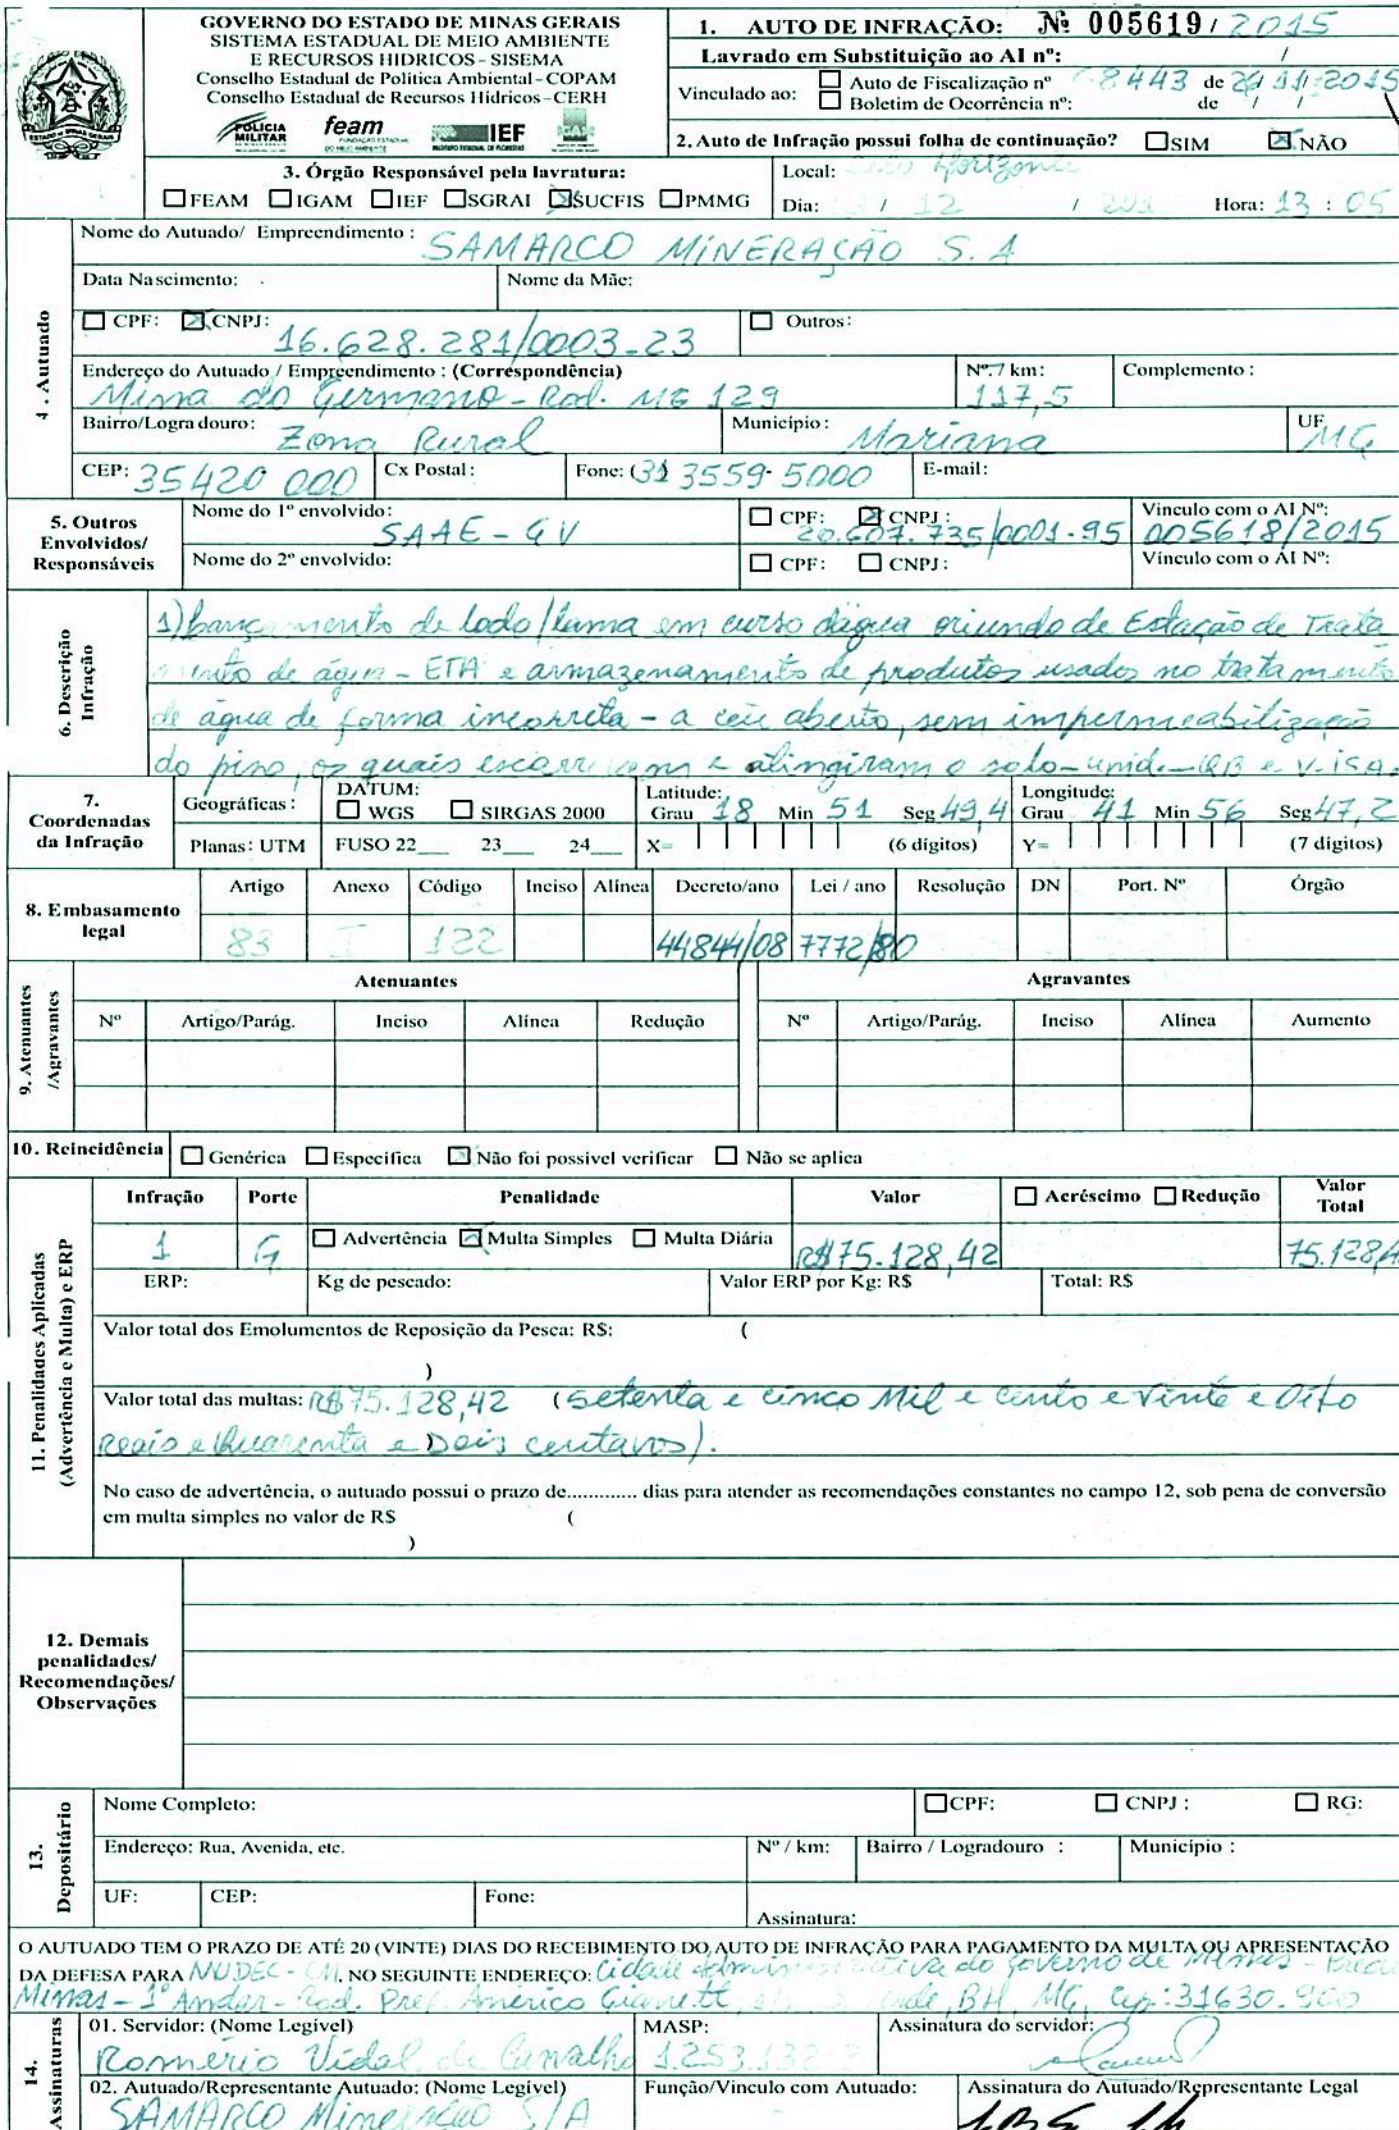 GOVERNO DO ESTADO DE MINAS GERAIS
SISTEMA ESTADUAL DE MEIO AMBIENTE
E RECURSOS HIDRICOS - SISEMA
Conselho Estadual de Política Ambiental - COPAM
Conselho Estadual de Recursos Hídricos - CERH
POLÍCIA MILITAR feam IEF IGAM
1. AUTO DE INFRAÇÃO: Nº 005619 / 2015
Lavrado em Substituição ao AI nº: /
Vinculado ao: ☐ Auto de Fiscalização nº 8443 de 11 2015
☐ Boletim de Ocorrência nº: de / /
2. Auto de Infração possui folha de continuação? ☐ SIM ☒ NÃO
3. Órgão Responsável pela lavratura:
☐ FEAM ☐ IGAM ☐ IEF ☐ SGRAI ☒ SUCFIS ☐ PMMG
Local: Horizonte
Dia: / 12 / Hora: 13 : 05
4. Autuado
Nome do Autuado/ Empreendimento : SAMARCO MINERAÇÃO S. A
Data Nascimento: Nome da Mãe:
☐ CPF: ☒ CNPJ: 16.628.281/0003-23 ☐ Outros:
Endereço do Autuado / Empreendimento : (Correspondência) Nº / km: Complemento :
Mina do Germano - Rod. MG 129 117,5
Bairro/Logradouro: Zona Rural Município: Mariana UF MG
CEP: 35420 000 Cx Postal: Fone: (31 3559-5000 E-mail:
5. Outros Envolvidos/ Responsáveis
Nome do 1º envolvido: SAAE - GV ☐ CPF: ☒ CNPJ: 20.607.735/0001-95 Vinculo com o AI Nº: 005618/2015
Nome do 2º envolvido: ☐ CPF: ☐ CNPJ: Vínculo com o AI Nº:
6. Descrição Infração
1) Lançamento de lodo/lama em curso dágua oriundo de Estação de Trata
mento de água - ETA e armazenamento de produtos usados no tratamento
de água de forma incorreta - a céu aberto, sem impermeabilização
do piso, os quais escorreram e atingiram o solo - unid.
7. Coordenadas da Infração
Geográficas : DATUM: ☐ WGS ☐ SIRGAS 2000 Latitude: Grau 18 Min 51 Seg 49,4 Longitude: Grau 41 Min 56 Seg 47,2
Planas: UTM FUSO 22___ 23___ 24___ X= (6 dígitos) Y= (7 dígitos)
8. Embasamento legal
Artigo Anexo Código Inciso Alínea Decreto/ano Lei / ano Resolução DN Port. Nº Órgão
83 I 122 44844/08 7772/80
9. Atenuantes /Agravantes
Atenuantes Agravantes
Nº Artigo/Parág. Inciso Alínea Redução Nº Artigo/Parág. Inciso Alínea Aumento
10. Reincidência ☐ Genérica ☐ Específica ☒ Não foi possivel verificar ☐ Não se aplica
11. Penalidades Aplicadas (Advertência e Multa) e ERP
Infração Porte Penalidade Valor ☐ Acréscimo ☐ Redução Valor Total
1 G ☐ Advertência ☒ Multa Simples ☐ Multa Diária R$75.128,42 75.128,4
ERP: Kg de pescado: Valor ERP por Kg: R$ Total: R$
Valor total dos Emolumentos de Reposição da Pesca: R$: (
)
Valor total das multas: R$75.128,42 (setenta e cinco Mil e cento e Vinte e Oito
Reais e Quarenta e Dois centavos).
No caso de advertência, o autuado possui o prazo de............. dias para atender as recomendações constantes no campo 12, sob pena de conversão
em multa simples no valor de R$ (
)
12. Demais penalidades/ Recomendações/ Observações
13. Depositário
Nome Completo: ☐ CPF: ☐ CNPJ : ☐ RG:
Endereço: Rua, Avenida, etc. Nº / km: Bairro / Logradouro : Município :
UF: CEP: Fone: Assinatura:
O AUTUADO TEM O PRAZO DE ATÉ 20 (VINTE) DIAS DO RECEBIMENTO DO AUTO DE INFRAÇÃO PARA PAGAMENTO DA MULTA OU APRESENTAÇÃO
DA DEFESA PARA NUDEC - , NO SEGUINTE ENDEREÇO: Cidade Administrativa do Governo de Minas -
Minas - 1º Andar - Rod. Pref. Américo BH, MG, Cep: 31630.900
14. Assinaturas
01. Servidor: (Nome Legível) MASP: Assinatura do servidor:
Romério Vidal de Carvalho 1.253.
02. Autuado/Representante Autuado: (Nome Legível) Função/Vinculo com Autuado: Assinatura do Autuado/Representante Legal
SAMARCO Mineração S/A